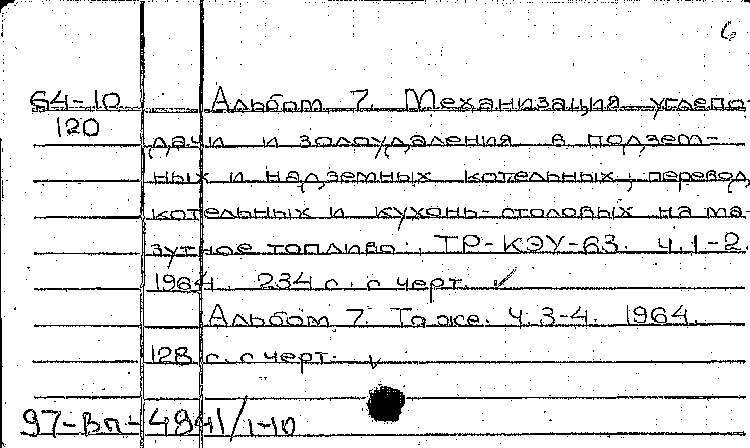 6
64-10 Альбом 7. Механизация углепо
120 дачи и золоудаления в подзем-
ных и надземных котельных, перевод
котельных и кухонь-столовых на ма
зутное топливо. ТР-КЭУ-63. ч.1-2.
1964. 234 с. с черт. ✓
Альбом 7. То же. Ч. 3-4. 1964.
128 с. с черт. ✓
97-Вп-4941/1-10